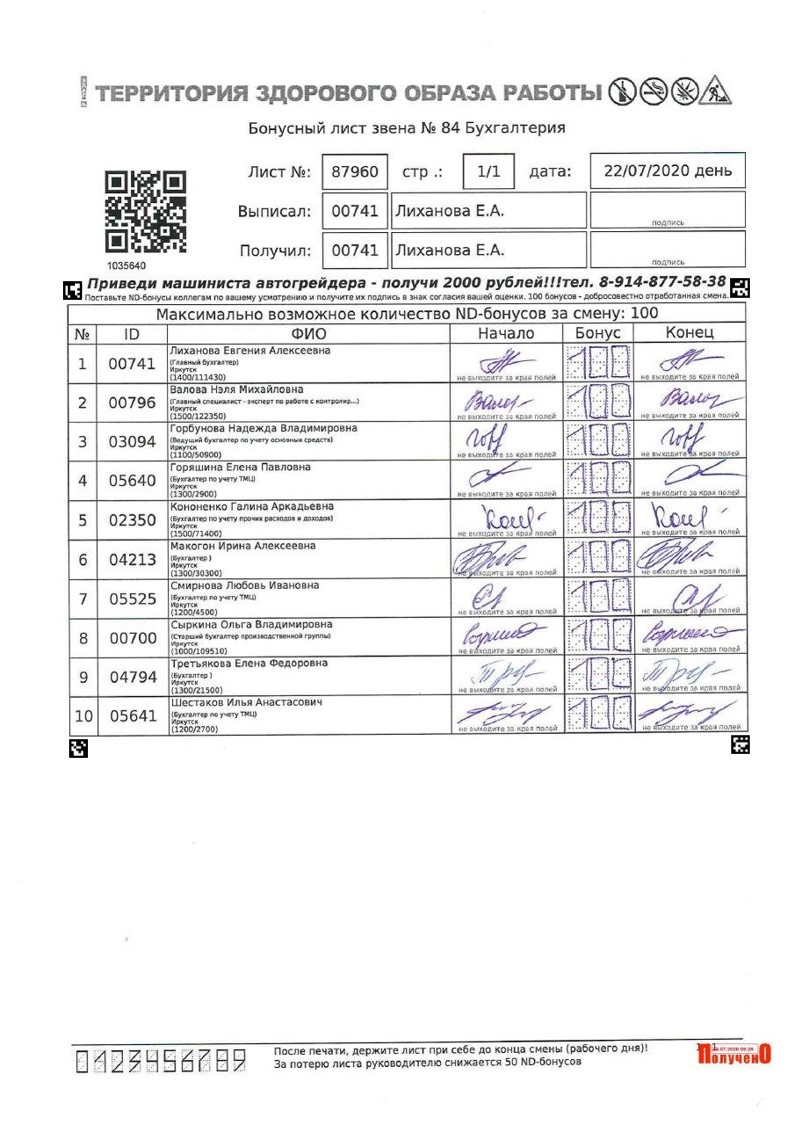 ТЕРРИТОРИЯ ЗДОРОВОГО ОБРАЗА РАБОТЫ
Бонусный лист звена № 84 Бухгалтерия
Лист №: 87960 стр .: 1/1 дата: 22/07/2020 день
Выписал: 00741 Лиханова Е.А.
подпись
Получил: 00741 Лиханова Е.А.
подпись
1035640
Приведи машиниста автогрейдера - получи 2000 рублей!!!тел. 8-914-877-58-38
Поставьте ND-бонусы коллегам по вашему усмотрению и получите их подпись в знак согласия вашей оценки. 100 бонусов - добросовестно отработанная смена.
Максимально возможное количество ND-бонусов за смену: 100
№ ID ФИО Начало Бонус Конец
1 00741 Лиханова Евгения Алексеевна 100
(Главный бухгалтер)
Иркутск
(1400/111430) не выходите за края полей не выходите за края полей
2 00796 Валова Нэля Михайловна Валов 100 Валов
(Главный специалист - эксперт по работе с контролир...)
Иркутск
(1500/122350) не выходите за края полей не выходите за края полей
3 03094 Горбунова Надежда Владимировна 100
(Ведущий бухгалтер по учету основных средств)
Иркутск
(1100/50900) не выходите за края полей не выходите за края полей
4 05640 Горяшина Елена Павловна 100
(Бухгалтер по учету ТМЦ)
Иркутск
(1300/2900) не выходите за края полей не выходите за края полей
5 02350 Кононенко Галина Аркадьевна 100
(Бухгалтер по учету прочих расходов и доходов)
Иркутск
(1500/71400) не выходите за края полей не выходите за края полей
6 04213 Макогон Ирина Алексеевна 100
(Бухгалтер )
Иркутск
(1300/30300) не выходите за края полей не выходите за края полей
7 05525 Смирнова Любовь Ивановна 100
(Бухгалтер по учету ТМЦ)
Иркутск
(1200/4500) не выходите за края полей не выходите за края полей
8 00700 Сыркина Ольга Владимировна 100
(Старший бухгалтер производственной группы)
Иркутск
(1000/109510) не выходите за края полей не выходите за края полей
9 04794 Третьякова Елена Федоровна 100
(Бухгалтер )
Иркутск
(1300/21500) не выходите за края полей не выходите за края полей
10 05641 Шестаков Илья Анастасович 100
(Бухгалтер по учету ТМЦ)
Иркутск
(1200/2700) не выходите за края полей не выходите за края полей
0123456789 После печати, держите лист при себе до конца смены (рабочего дня)!
За потерю листа руководителю снижается 50 ND-бонусов
ПолученО